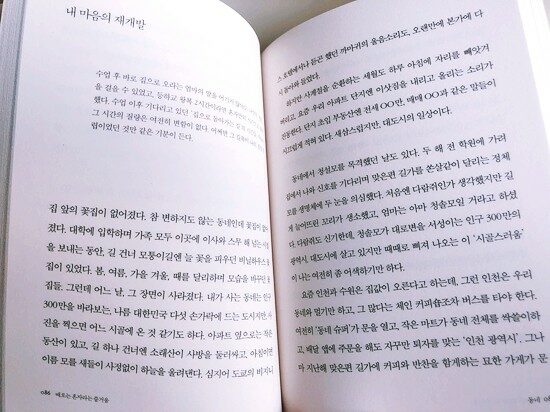 내 마음의 재개발
수업 후 바로 집으로 오라는 엄마의 말을
을 걸을 수 있었고, 등하교 왕복 2시간이라면
했다. 수업 이후 기다리고 있던 '집으로 돌아가는
그 시간의 질량은 여전히 변함이 없다. 어쩌면 그
럼이었던 것만 같은 기분이 든다.
집 앞의 꽃집이 없어졌다. 참 변하지도 않는 동네인데 꽃집이
다. 대학에 입학하며 가족 모두 이곳에 이사와 스무 해 넘는
을 보내는 동안, 길 건너 모퉁이길엔 늘 꽃을 피우던 비닐하우스
집이 있었다. 봄, 여름, 가을 겨울, 때를 달리하며 모습을 바꾸던 꽃
집들. 그런데 어느 날, 그 장면이 사라졌다. 내가 사는 동네는 인구
300만을 바라보는 나름 대한민국 다섯 손가락에 드는 도시지만, 사
진을 찍으면 어느 시골에 온 것 같기도 하다. 아파트 옆으로는 작은
동산이 있고, 길 하나 건너엔 소래산이 사방을 둘러싸고, 아침이면
이름 모를 새들이 사정없이 하늘을 울려댄다. 심지어 도쿄의 비지니
086 때로는 혼자라는 즐거움
스 호텔에서나 듣곤 했던 까마귀의 울음소리도, 오랜만에 본가에 다
시 돌아와 들었다.
하지만 사계절을 순환하는 세월도 하루 아침에 자리를 빼앗겨
버리고, 요즘 우리 아파트 단지엔 이삿짐을 내리고 올리는 소리가
진동한다. 단지 초입 부동산엔 전세 OO만, 매매 OO과 같은 말들이
시끄럽게 적혀 있다. 새삼스럽지만, 대도시의 일상이다.
동네에서 청설모를 목격했던 날도 있다. 두 해 전 학원에 가려
집에서 나와 신호를 기다리며 맞은편 길가를 쏜살같이 달리는 정체
모를 생명체에 두 눈을 의심했다. 처음엔 다람쥐인가 생각했지만 길
게 늘어뜨린 꼬리가 생소했고, 엄마는 아마 청솔모일 거라고 하셨
다. 다람쥐도 신기한데, 청솔모가 대로변을 서성이는 인구 300만의
광역시. 대도시에 살고 있지만 때때로 삐져 나오는 이 '시골스러움'
이 나는 여전히 좀 어색하기만 하다.
요즘 인천과 수원은 집값이 오른다고 하는데, 그런 인천은 우리
동네와 멀기만 하고, 그 많다는 체인 커피숍조차 버스를 타야 한다.
여전히 '동네 슈퍼'가 문을 열고, 작은 마트가 동네 전체를 싹쓸이하
고, 배달 앱에 주문을 해도 자꾸만 퇴짜를 맞는 '인천 광역시'. 그나
마 지난해 맞은편 길가에 커피와 반찬을 함께하는 묘한 가게가 문
동네